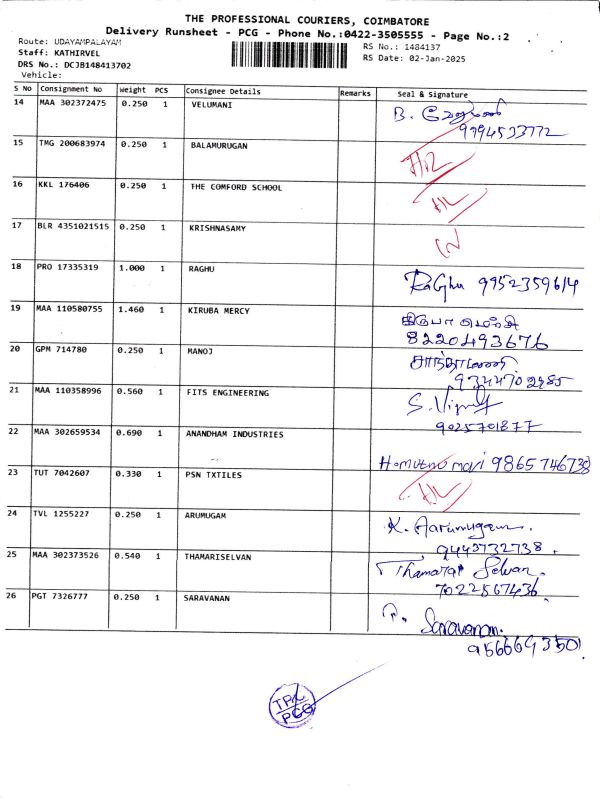 THE PROFESSIONAL COURIERS, COIMBATORE
Delivery Runsheet - PCG - Phone No.:0422-3505555 - Page No.:2
Route: UDAYAMPALAYAM
RS No.: 1484137
Staff: KATHIRVEL
RS Date: 02-Jan-2025
DRS No.: DCJB148413702
Vehicle:
S No Consignment No Weight PCS Consignee Details Remarks Seal & Signature
14 MAA 302372475 0.250 1 VELUMANI B. வேலுமணி
9994533772
15 TMG 200683974 0.250 1 BALAMURUGAN
16 KKL 176406 0.250 1 THE COMFORD SCHOOL
17 BLR 4351021515 0.250 1 KRISHNASAMY
18 PRO 17335319 1.000 1 RAGHU RaGhu 9952359614
19 MAA 110580755 1.460 1 KIRUBA MERCY கிருபா மெர்சி
8220493676
20 GPM 714780 0.250 1 MANOJ
21 MAA 110358996 0.560 1 FITS ENGINEERING
9025701877
22 MAA 302659534 0.690 1 ANANDHAM INDUSTRIES 9865746738
23 TUT 7042607 0.330 1 PSN TXTILES
24 TVL 1255227 0.250 1 ARUMUGAM K. Aarumugam.
9443732738.
25 MAA 302373526 0.540 1 THAMARISELVAN Thamarai Selvan.
7022567436
26 PGT 7326777 0.250 1 SARAVANAN Saravanan.
956669350
TPC
PCG